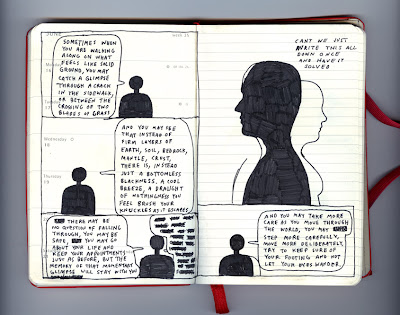 JUNE
week 25
SOMETIMES WHEN
YOU ARE WALKING
ALONG ON WHAT
FEELS LIKE SOLID
GROUND, YOU MAY
CATCH A GLIMPSE
THROUGH A CRACK
IN THE SIDEWALK,
OR BETWEEN THE
CROSSING OF TWO
BLADES OF GRASS
Wednesday
AND YOU MAY SEE
THAT INSTEAD OF
FIRM LAYERS OF
EARTH, SOIL, BEDROCK,
MANTLE, CREST,
THERE IS, INSTEAD
JUST A BOTTOMLESS
BLACKNESS, A COOL
BREEZE, A DRAUGHT OF
NOTHINGNESS YOU
FEEL BRUSH YOUR
KNUCKLES AS IT ESCAPES
Thursday
THERE MAY BE
NO QUESTION OF FALLING
THROUGH, YOU MAY BE
SAFE, YOU MAY GO
ABOUT YOUR LIFE AND
KEEP YOUR APPOINTMENTS
JUST AS BEFORE, BUT THE
MEMORY OF THAT MOMENTARY
GLIMPSE WILL STAY WITH YOU
CANT WE JUST
WRITE THIS ALL
DOWN ONCE
AND HAVE IT
SOLVED
AND YOU MAY TAKE MORE
CARE AS YOU MOVE THROUGH
THE WORLD, YOU MAY
STEP MORE CAREFULLY,
MOVE MORE DELIBERATELY,
TRY TO KEEP SURE OF
YOUR FOOTING AND NOT
LET YOUR EYES WANDER.